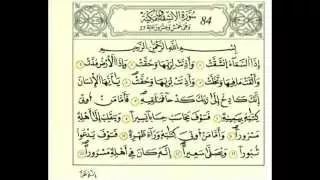 سُورَةُ الِانْشِقَاقِ مَكِّيَّةٌ 84
بِسْمِ اللهِ الرَّحْمٰنِ الرَّحِيمِ
إِذَا السَّمَاءُ انْشَقَّتْ وَأَذِنَتْ لِرَبِّهَا وَحُقَّتْ وَإِذَا الْأَرْضُ مُدَّتْ
وَأَلْقَتْ مَا فِيهَا وَتَخَلَّتْ وَأَذِنَتْ لِرَبِّهَا وَحُقَّتْ يَا أَيُّهَا الْإِنْسَانُ
إِنَّكَ كَادِحٌ إِلَى رَبِّكَ كَدْحًا فَمُلَاقِيهِ فَأَمَّا مَنْ أُوتِيَ
كِتَابَهُ بِيَمِينِهِ فَسَوْفَ يُحَاسَبُ حِسَابًا يَسِيرًا وَيَنْقَلِبُ إِلَى أَهْلِهِ
مَسْرُورًا وَأَمَّا مَنْ أُوتِيَ كِتَابَهُ وَرَاءَ ظَهْرِهِ فَسَوْفَ يَدْعُوا
ثُبُورًا وَيَصْلَى سَعِيرًا إِنَّهُ كَانَ فِي أَهْلِهِ مَسْرُورًا